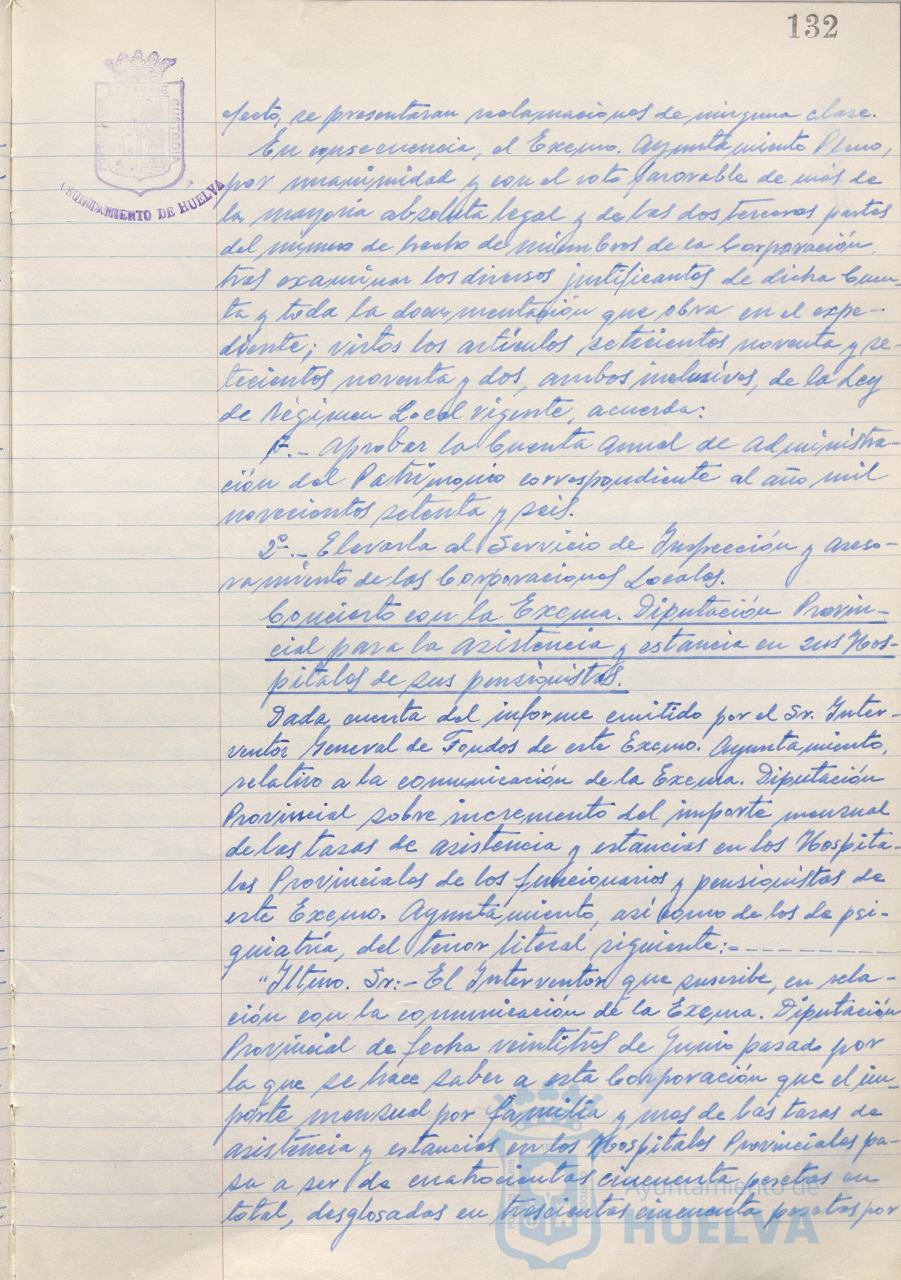 132
CUSTODIA
AYUNTAMIENTO DE HUELVA
efecto, se presentaran reclamaciones de ninguna clase.
En consecuencia, el Excmo. Ayuntamiento Pleno,
por unanimidad y con el voto favorable de más de
la mayoría absoluta legal y de las dos terceras partes
del número de hecho de miembros de la Corporación,
tras examinar los diversos justificantes de dicha Cuen-
ta y toda la documentación que obra en el expe-
diente; vistos los artículos setecientos noventa y se-
tecientos noventa y dos, ambos inclusives, de la Ley
de Régimen Local vigente, acuerda:
1º.- Aprobar la Cuenta Anual de Administra-
ción del Patrimonio correspondiente al año mil
novecientos setenta y seis.
2º.- Elevarla al Servicio de Inspección y aseso-
ramiento de las Corporaciones Locales.
Concierto con la Excma. Diputación Provin-
cial para la asistencia y estancia en sus Hos-
pitales de sus pensionistas.
Dada cuenta del informe emitido por el Sr. Inter-
ventor General de Fondos de este Excmo. Ayuntamiento,
relativo a la comunicación de la Excma. Diputación
Provincial sobre incremento del importe mensual
de las tasas de asistencia y estancias en los Hospita-
les Provinciales de los funcionarios y pensionistas de
este Excmo. Ayuntamiento, así como de los de psi-
quiatría, del tenor literal siguiente:- - - - - - - - -
"Iltmo. Sr:- El Interventor que suscribe, en rela-
ción con la comunicación de la Excma. Diputación
Provincial de fecha veintitres de Junio pasado por
la que se hace saber a esta Corporación que el im-
porte mensual por familia y mes de las tasas de
asistencia y estancias en los Hospitales Provinciales pa-
sa a ser de cuatrocientas cincuenta pesetas en
total, desglosadas en trescientas cincuenta pesetas por
Ayuntamiento de
HUELVA